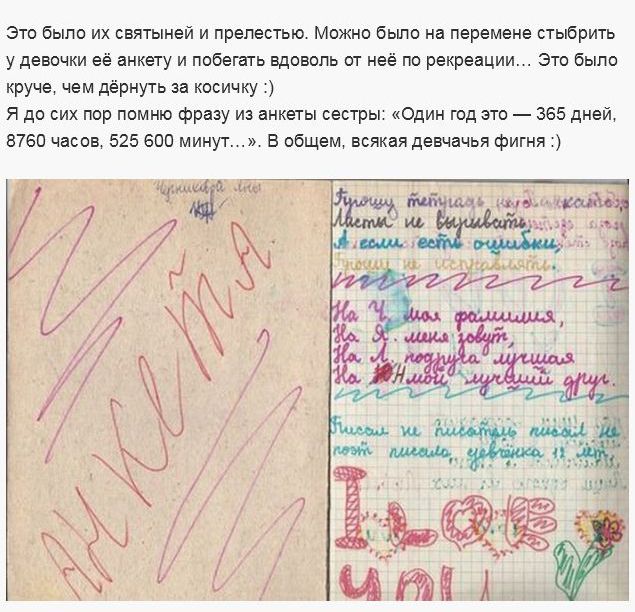 Это было их святыней и прелестью. Можно было на перемене стыбрить
у девочки её анкету и побегать вдоволь от неё по рекреации... Это было
круче, чем дёрнуть за косичку :)
Я до сих пор помню фразу из анкеты сестры: «Один год это — 365 дней,
8760 часов, 525 600 минут...». В общем, всякая девчачья фигня :)
Яны
Анкета
Прошу тетрадь не
Ласты не вырывать,
А если есть ошибки,
Прошу не исправлять.
На Ч. моя фамилия,
На Я. меня зовут,
На Л. подруга лучшая
На Н мой лучший друг.
Писал не писатель писал не
поэт писала девчёнка 12 лет.
I LOVE
YOU